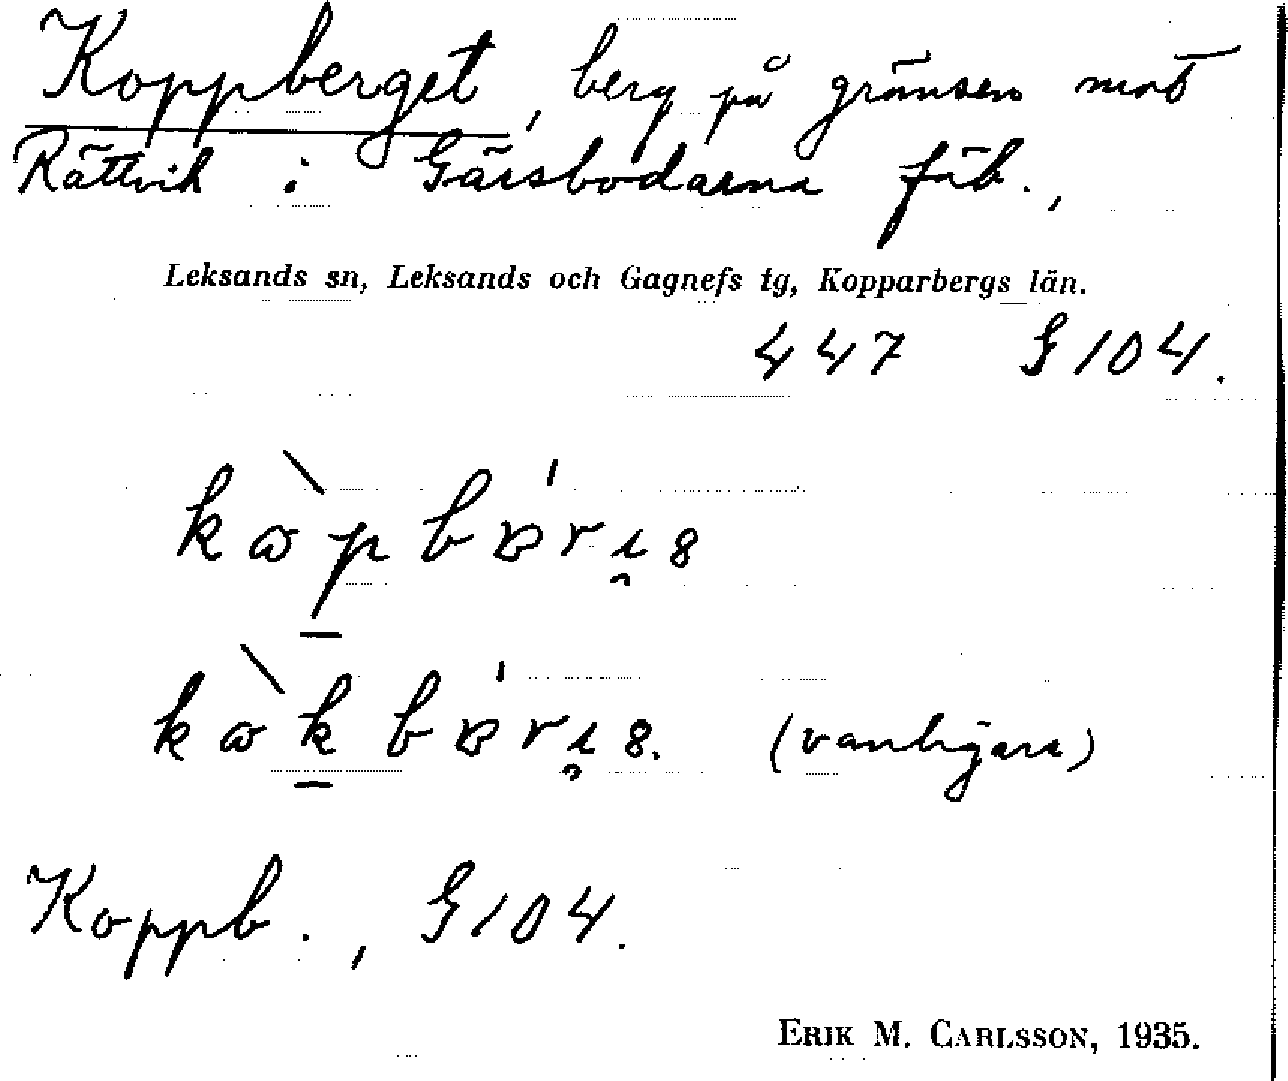 Koppberget, berg på gränsen mot
Rättvik i Gärsbodarna fäb.,
Leksands sn, Leksands och Gagnefs tg, Kopparbergs län.
447 G104.
(vanligare)
Koppb., G104.
ERIK M. CARLSSON, 1935.